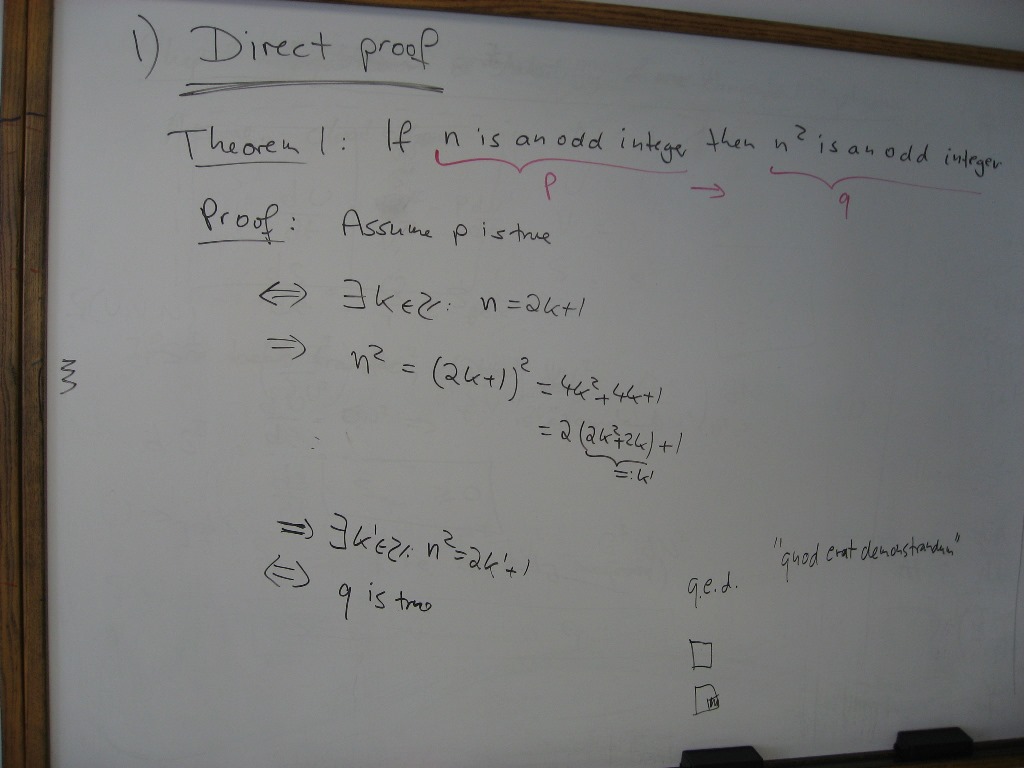 1) Direct proof
Theorem 1: If n is an odd integer then n² is an odd integer
p → q
Proof: Assume p is true
⇔ ∃k∈ℤ: n=2k+1
⇒ n² = (2k+1)² = 4k²+4k+1
= 2(2k²+2k)+1
=:k'
⇒ ∃k'∈ℤ: n²=2k'+1
⇔ q is true
q.e.d. "quod erat demonstrandum"